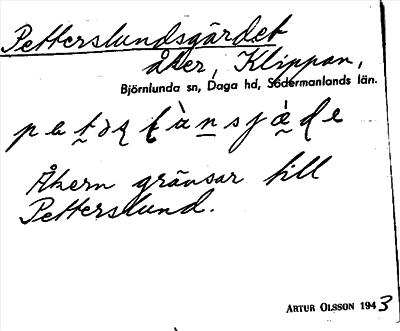 Petterslundsgärdet
åker, Klippan,
Björnlunda sn, Daga hd, Södermanlands län.
Åkern gränsar till
Petterslund.
ARTUR OLSSON 1943